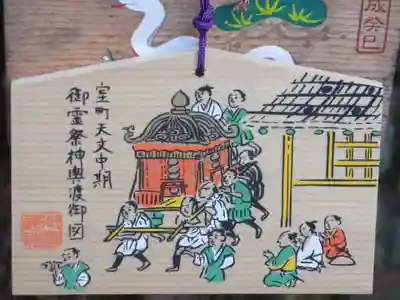 成癸巳
室町天文中期
御霊祭神輿渡御図